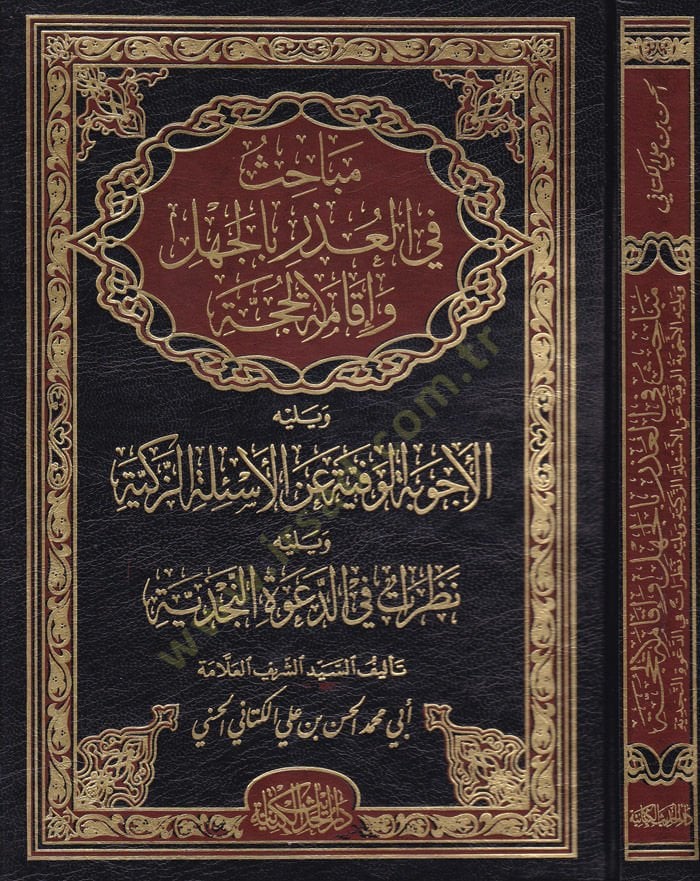 مباحث
في العذر بالجهل
وإقامة الحجة
ويليه
الأجوبة الوفية عن الأسئلة الزكية
ويليه
نظرات في الدعوة النجدية
تأليف السيد الشريف العلامة
أبي محمد الحسن بن علي الكتاني الحسني
دار الحديث الكتانية
الحسن بن علي الكتاني
مباحث في العذر بالجهل وإقامة الحجة
ويليه الأجوبة الوفية عن الأسئلة الزكية ويليه نظرات في الدعوة النجدية
دار الحديث الكتانية